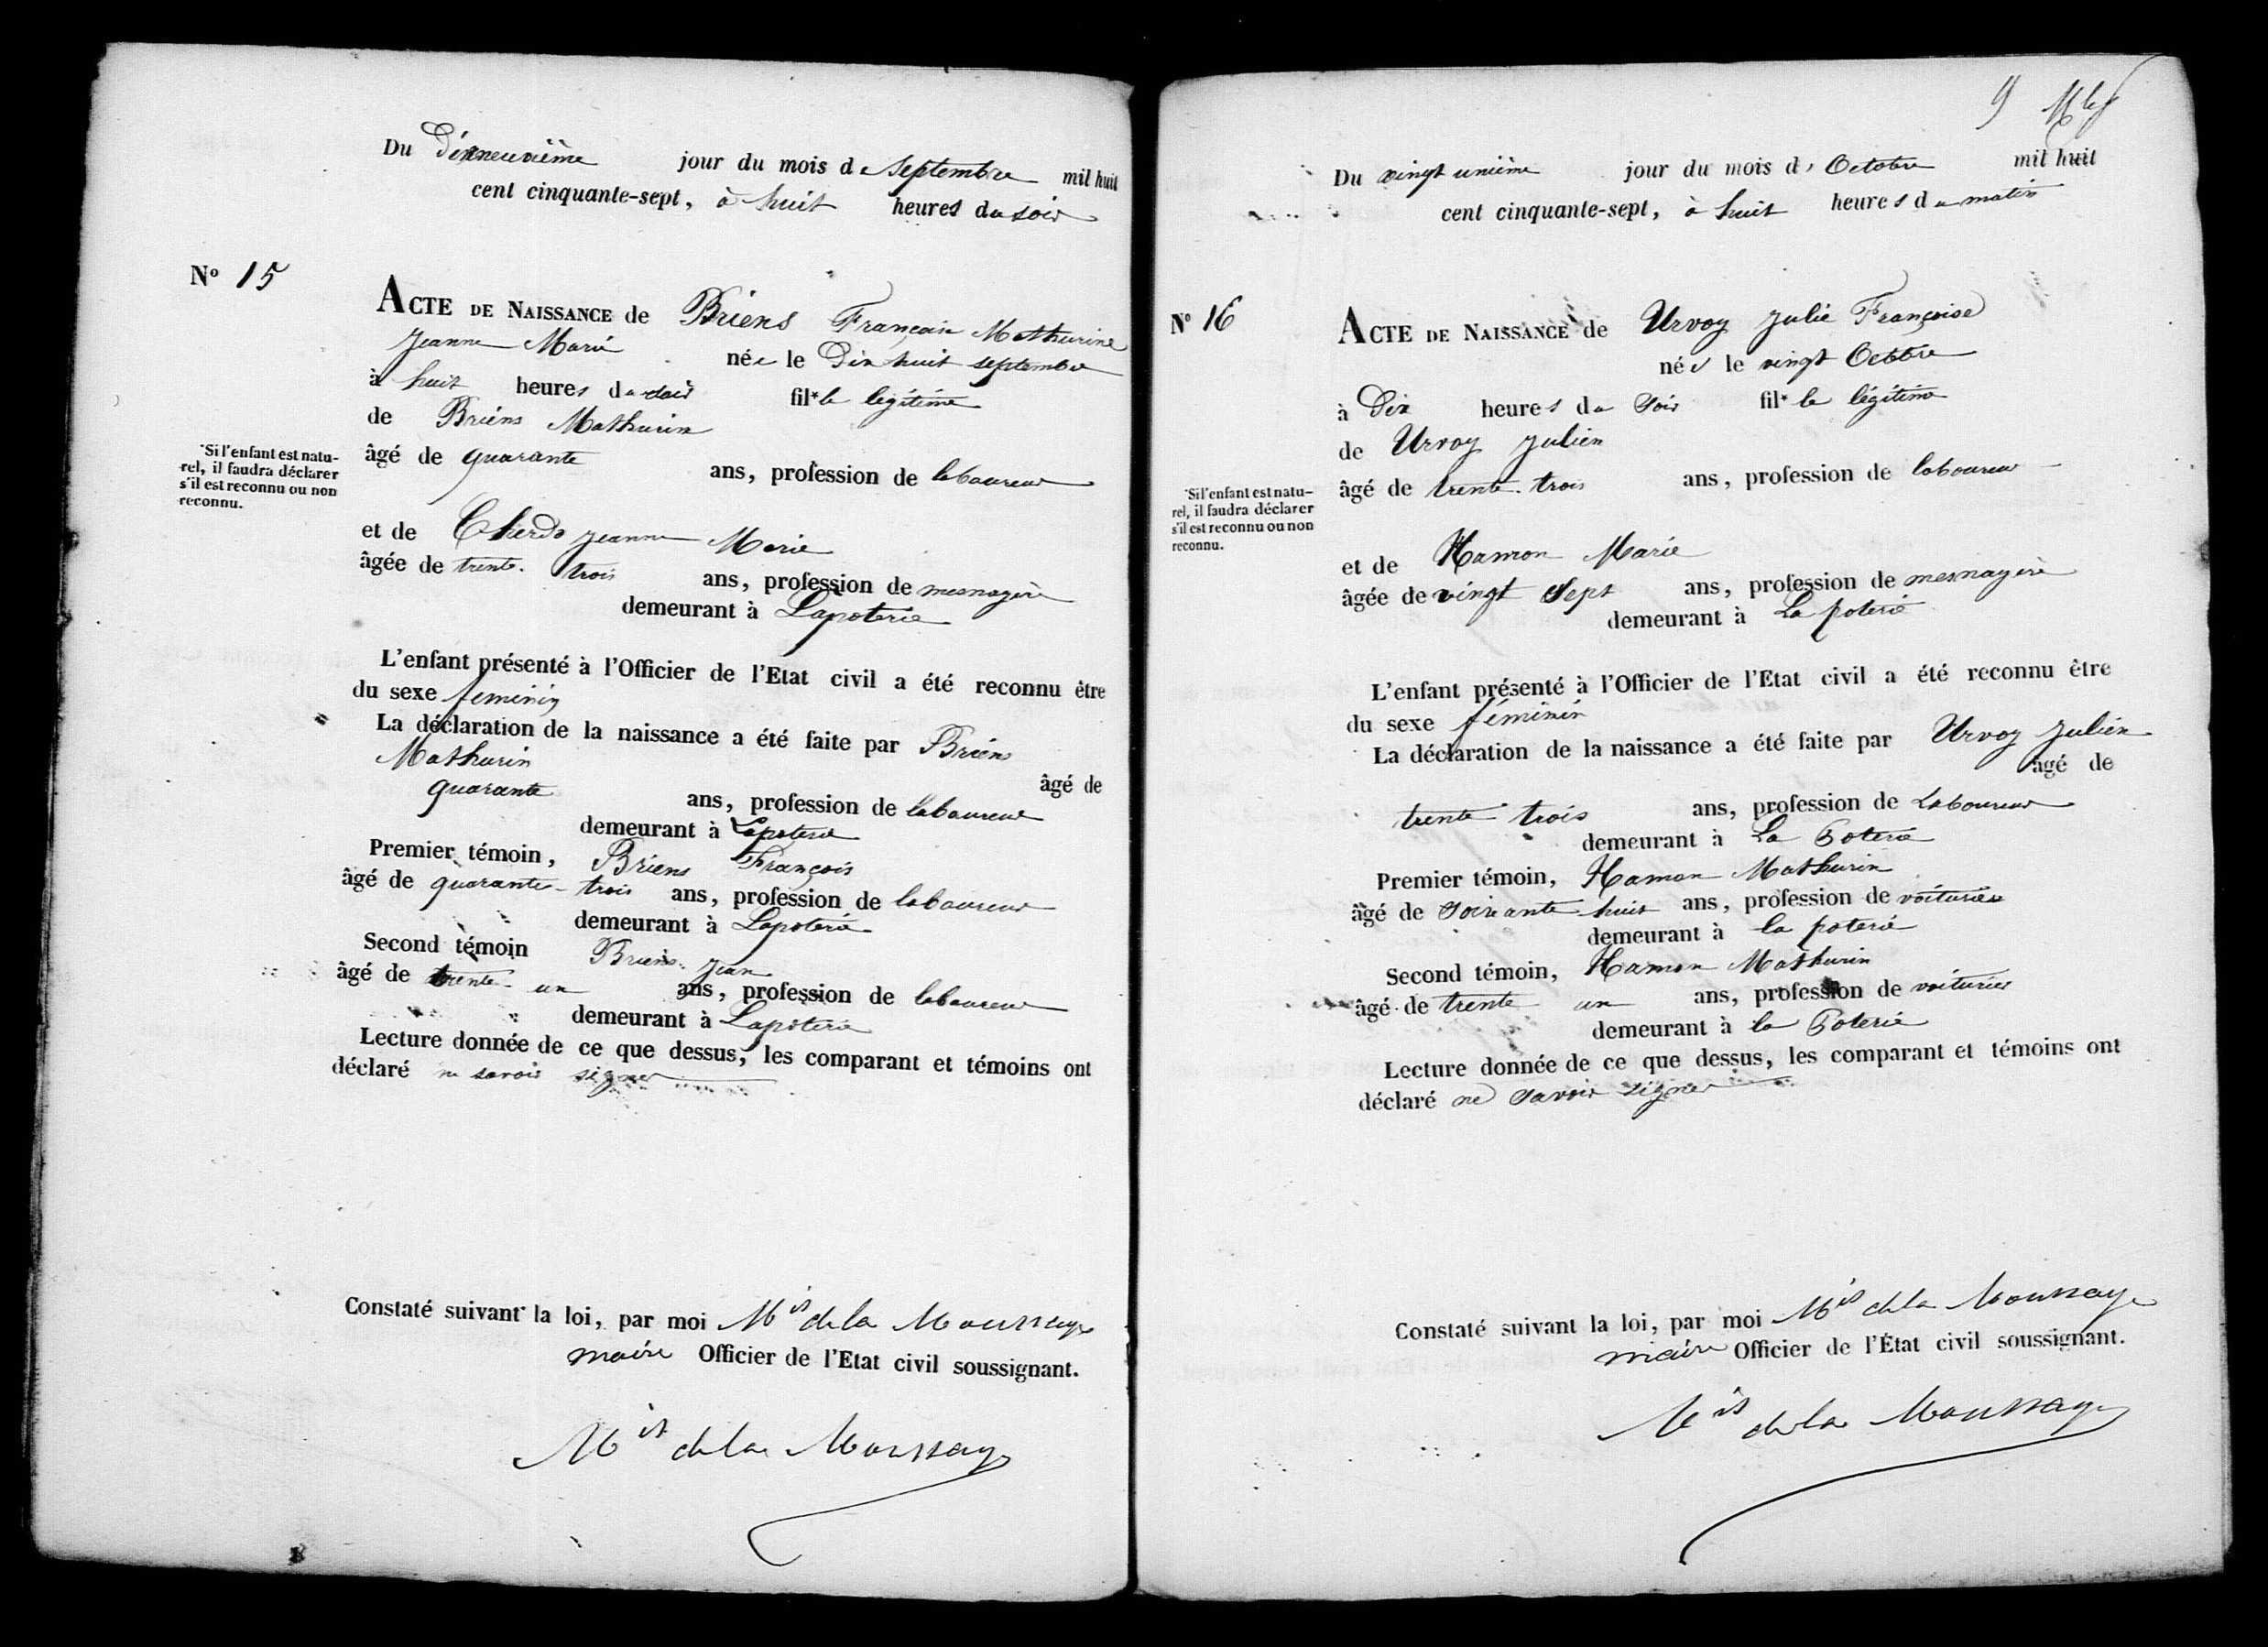 Du Dixneuvième jour du mois de Septembre mil huit
cent cinquante-sept, à huit heures du soir
N° 15
ACTE DE NAISSANCE de Briens Françoise Mathurine
Jeanne Marie née le Dix huit septembre
à huit heures du soir fil* le légitime
de Briens Mathurin
âgé de quarante ans, profession de laboureur
*Si l'enfant est natu-
rel, il faudra déclarer
s'il est reconnu ou non
reconnu.
et de Jeanne Marie
âgée de trente-trois ans, profession de mesnagère
demeurant à Lapoterie
L'enfant présenté à l'Officier de l'Etat civil a été reconnu être
du sexe feminin
La déclaration de la naissance a été faite par Briens
Mathurin âgé de
quarante ans, profession de laboureur
demeurant à Lapoterie
Premier témoin, Briens François
âgé de quarante-trois ans, profession de laboureur
demeurant à Lapoterie
Second témoin Briens Jean
âgé de trente-un ans, profession de laboureur
demeurant à Lapoterie
Lecture donnée de ce que dessus, les comparant et témoins ont
déclaré ne savoir signer
Constaté suivant la loi, par moi Mis de la Moussaye
maire Officier de l'Etat civil soussignant.
Mis de la Moussaye
9
Du vingt unième jour du mois d'Octobre mil huit
cent cinquante-sept, à huit heures du matin
N° 16
ACTE DE NAISSANCE de Urvoy Julie Françoise
née le vingt Octobre
à Dix heures du Soir fil* le légitime
de Urvoy Julien
âgé de trente-trois ans, profession de laboureur
*Si l'enfant est natu-
rel, il faudra déclarer
s'il est reconnu ou non
reconnu.
et de Hamon Marie
âgée de vingt Sept ans, profession de mesnagère
demeurant à La poterie
L'enfant présenté à l'Officier de l'Etat civil a été reconnu être
du sexe féminin
La déclaration de la naissance a été faite par Urvoy Julien
âgé de
trente trois ans, profession de Laboureur
demeurant à La Poterie
Premier témoin, Hamon Mathurin
âgé de soixante huit ans, profession de voiturier
demeurant à la poterie
Second témoin, Hamon Mathurin
âgé de trente un ans, profession de voiturier
demeurant à la Poterie
Lecture donnée de ce que dessus, les comparant et témoins ont
déclaré ne savoir signer
Constaté suivant la loi, par moi Mis de la Moussaye
maire Officier de l'État civil soussignant.
Mis de la Moussaye